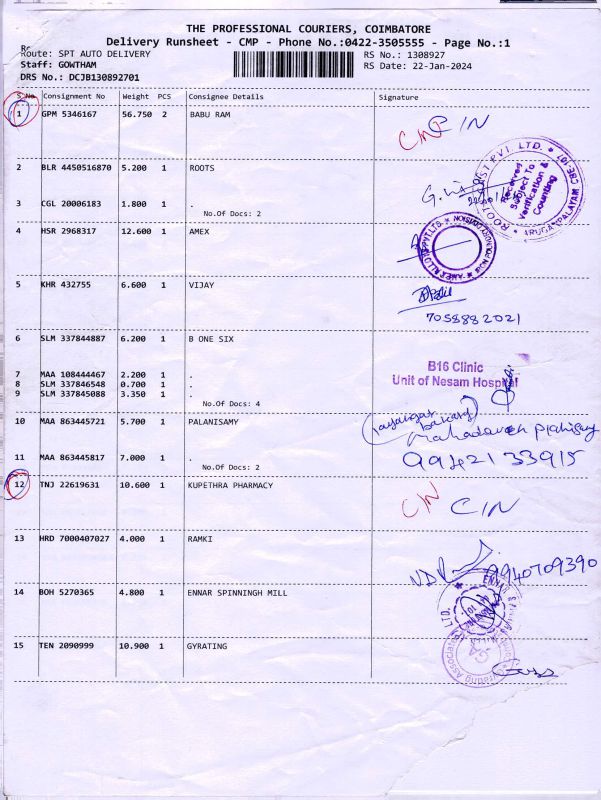 THE PROFESSIONAL COURIERS, COIMBATORE
Delivery Runsheet - CMP - Phone No.:0422-3505555 - Page No.:1
Route: SPT AUTO DELIVERY RS No.: 1308927
Staff: GOWTHAM RS Date: 22-Jan-2024
DRS No.: DCJB130892701
S.No Consignment No Weight PCS Consignee Details Signature
1 GPM 5346167 56.750 2 BABU RAM
CIN CIN
2 BLR 4450516870 5.200 1 ROOTS
Received Subject To Verification & Counting
3 CGL 20006183 1.800 1 .
No.Of Docs: 2
4 HSR 2968317 12.600 1 AMEX
5 KHR 432755 6.600 1 VIJAY
7058882021
6 SLM 337844887 6.200 1 B ONE SIX
B16 Clinic
Unit of Nesam Hospital
7 MAA 108444467 2.200 1 .
8 SLM 337846548 0.700 1 .
9 SLM 337845088 3.350 1 .
No.Of Docs: 4
10 MAA 863445721 5.700 1 PALANISAMY
11 MAA 863445817 7.000 1 .
9942133915
No.Of Docs: 2
12 TNJ 22619631 10.600 1 KUPETHRA PHARMACY
CIN CIN
13 HRD 7000407027 4.000 1 RAMKI
9940709390
14 BOH 5270365 4.800 1 ENNAR SPINNINGH MILL
15 TEN 2090999 10.900 1 GYRATING